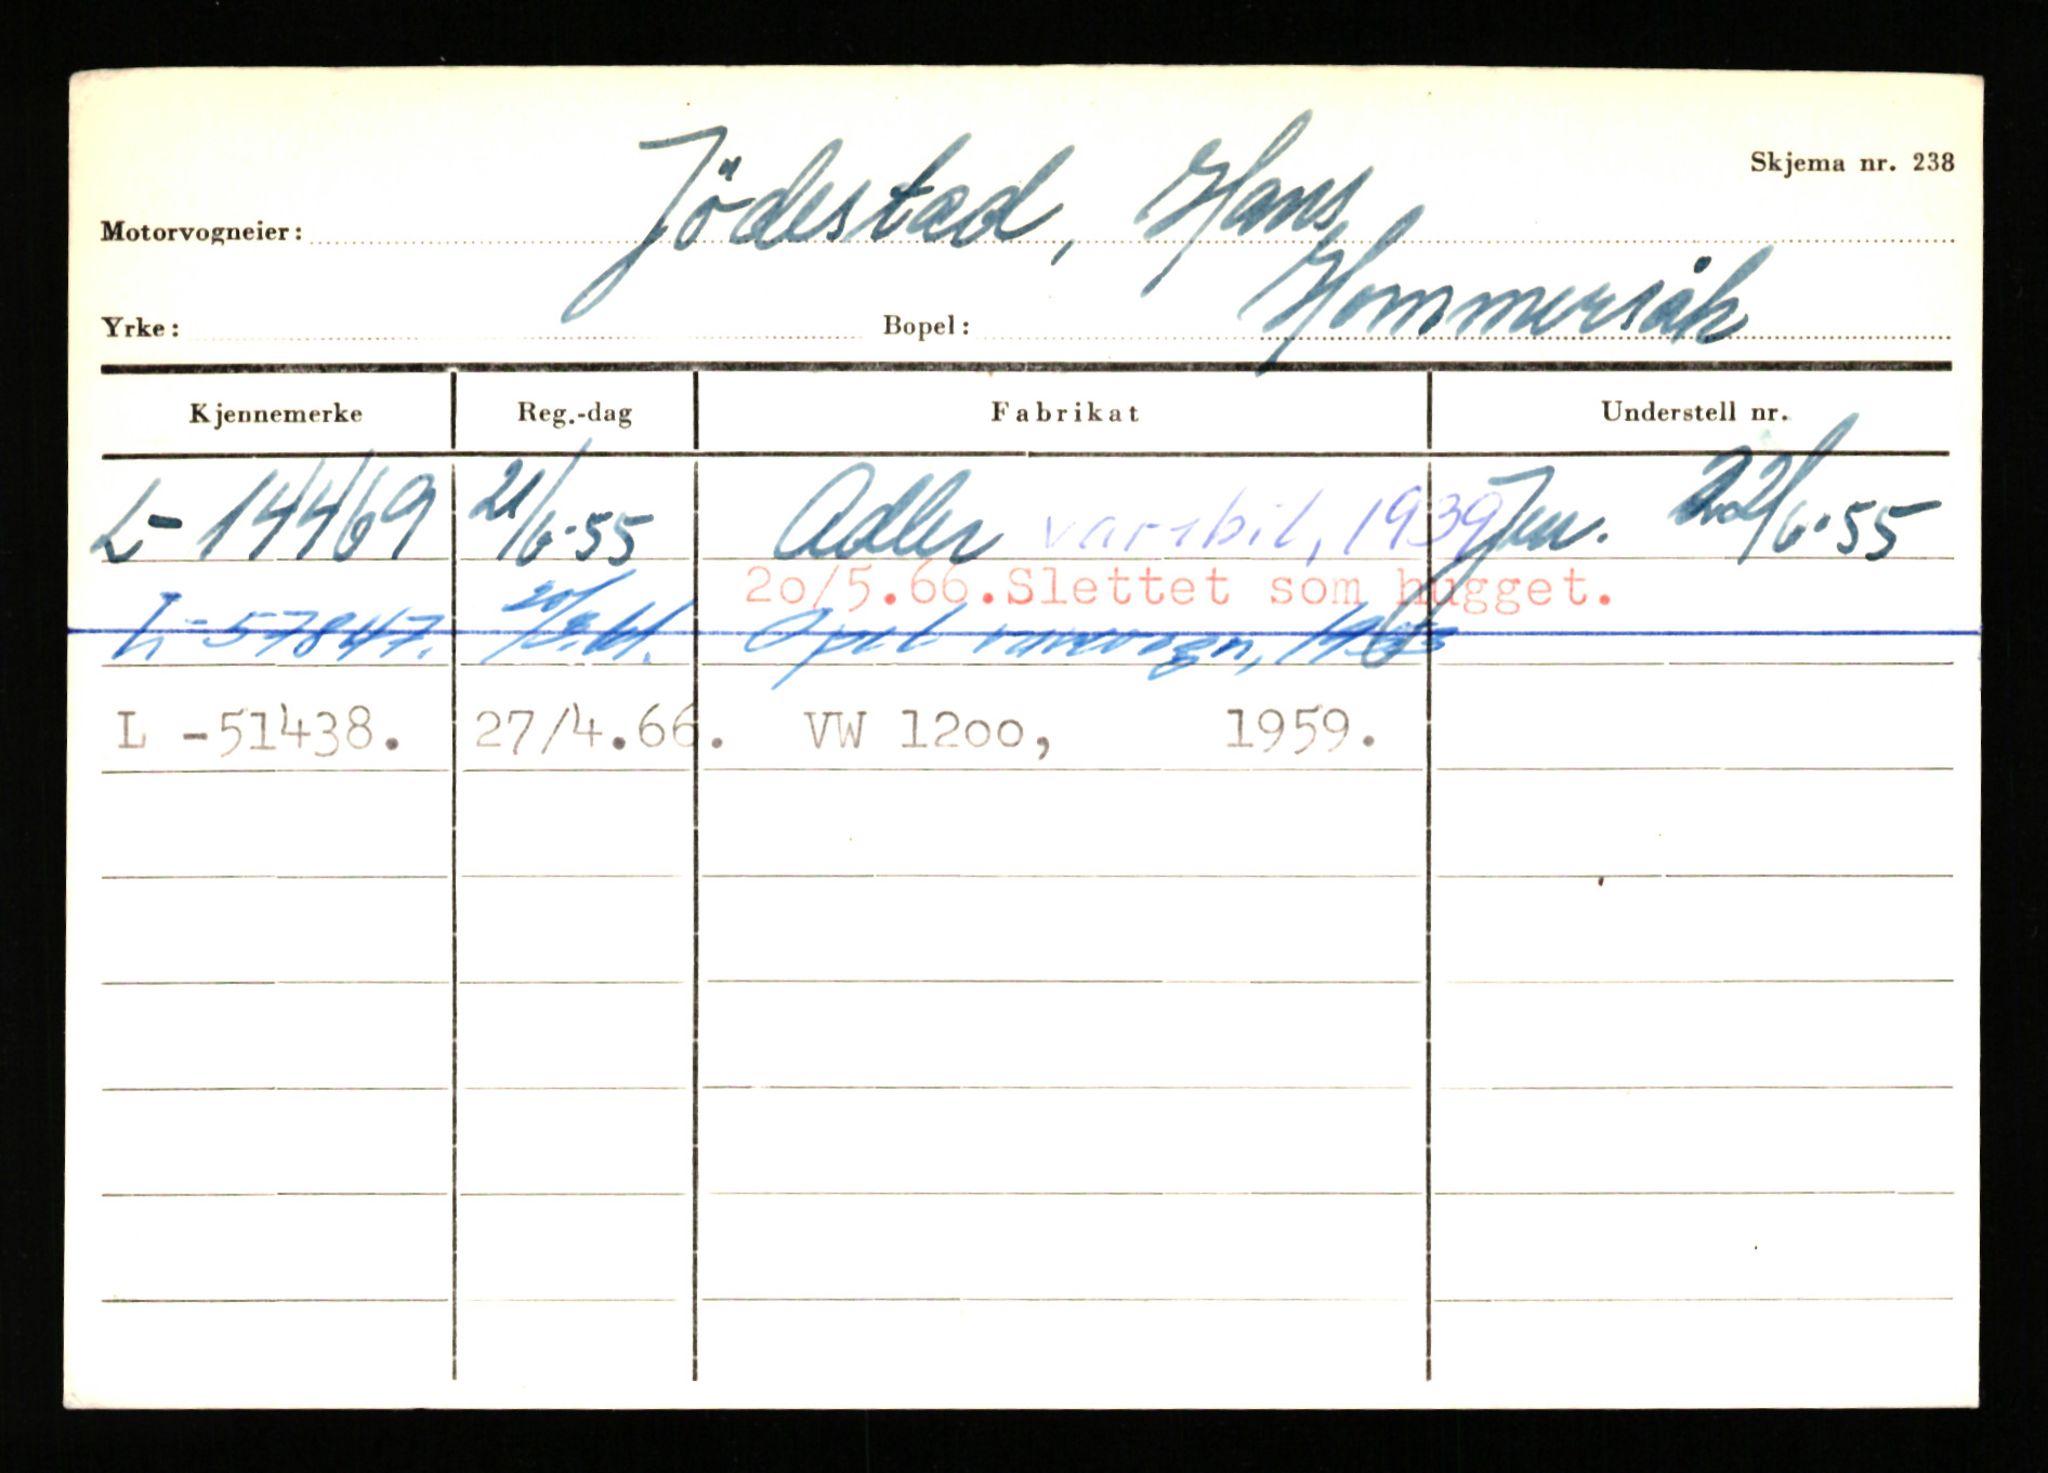 Skjema nr. 238
Motorvogneier: Jödestad, Hans
Yrke: Bopel: Hommersåk
Kjennemerke Reg.-dag Fabrikat Understell nr.
L- 14469 21/6-55 Adler varebil, 1939 Jen. 22/6-55
20/5.66. Slettet som hugget.
L-57847. 20/3.61. Opel varevogn, 1953
L -51438. 27/4.66. VW 1200, 1959.